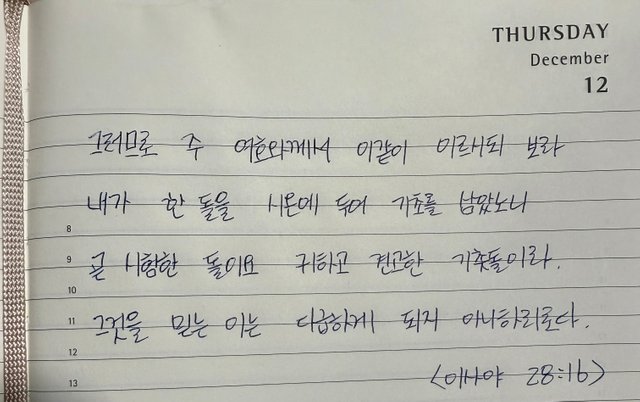 THURSDAY
December
12
그러므로 주 여호와께서 이같이 이르시되 보라
내가 한 돌을 시온에 두어 기초를 삼았노니
8
곧 시험한 돌이요 귀하고 견고한 기촛돌이라.
9
10
그것을 믿는 이는 다급하게 되지 아니하리로다.
11
12
<이사야 28:16>
13